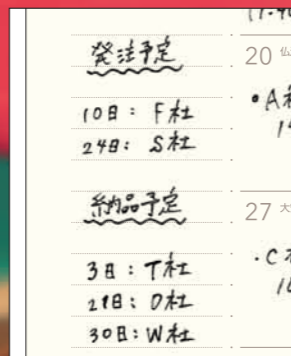 発注予定
10日: F社
24日: S社
納品予定
3日: T社
21日: O社
30日: W社
20 仏
・A社
27 大
・C